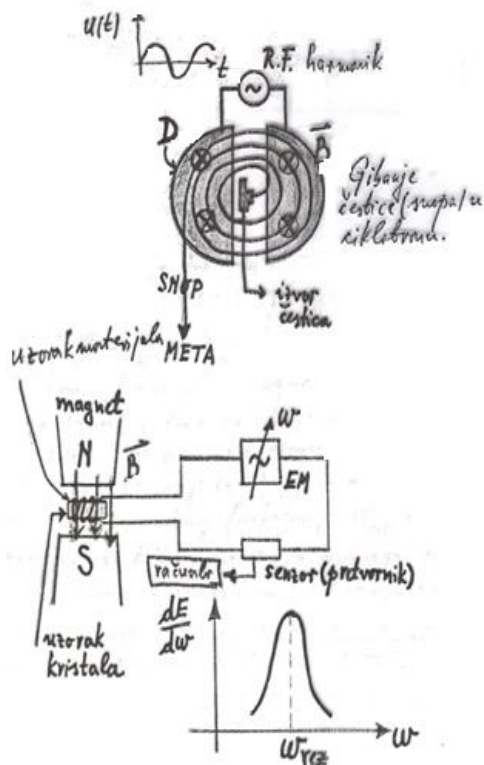 u(t)
t
R.F. harmonik
D
B
Gibanje
čestice (snopa) u
ciklotronu.
SNOP
izvor
čestica
META
uzorak materijala
magnet
N
B
ω
~
EM
S
senzor (pretvornik)
uzorak
kristala
dE
dω
ω
ω rez